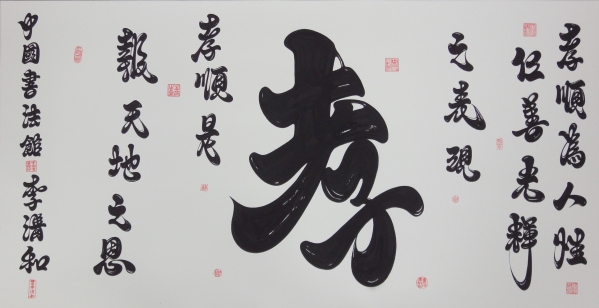 孝順為人性
仁善光輝
之表現
孝
孝順是
報天地之恩
中國書法館 李清和